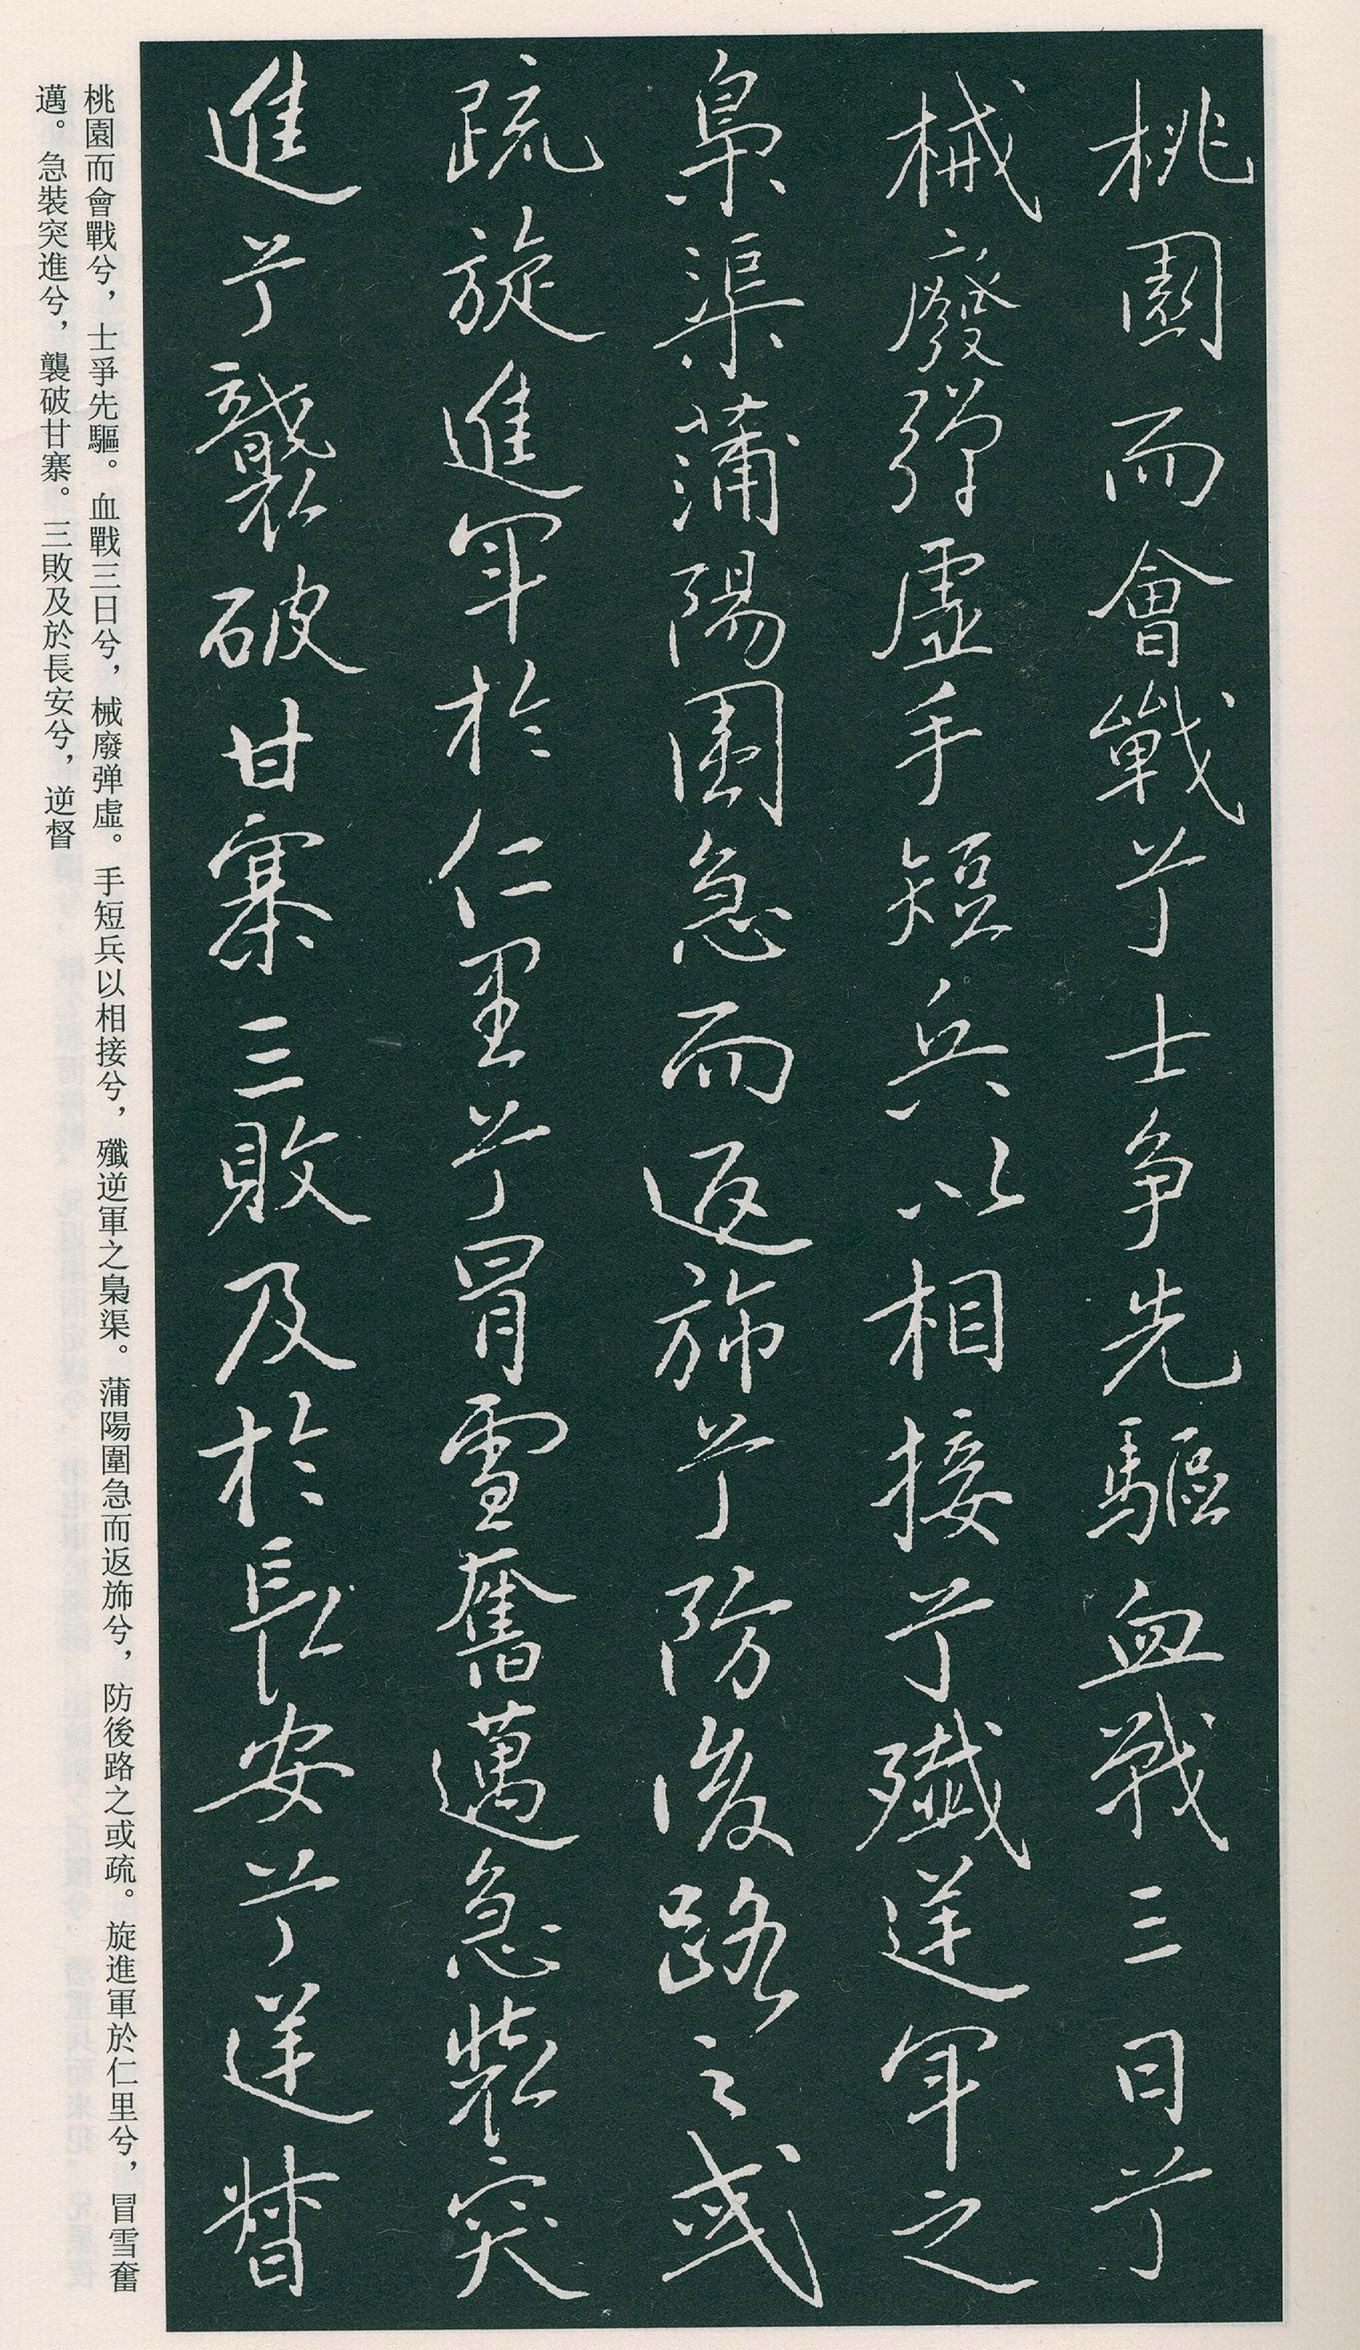 桃園而會戰兮士争先驅血戰三日兮
械廢彈虛手短兵以相接兮殲逆軍之
梟渠蒲陽圍急而返斾兮防後路之或
疏旋進軍於仁里兮冒雪奮邁急裝突
進兮襲破甘寨三敗及於長安兮逆督
桃園而會戰兮，士爭先驅。血戰三日兮，械廢弹虛。手短兵以相接兮，殲逆軍之梟渠。蒲陽圍急而返斾兮，防後路之或疏。旋進軍於仁里兮，冒雪奮
邁。急裝突進兮，襲破甘寨。三敗及於長安兮，逆督